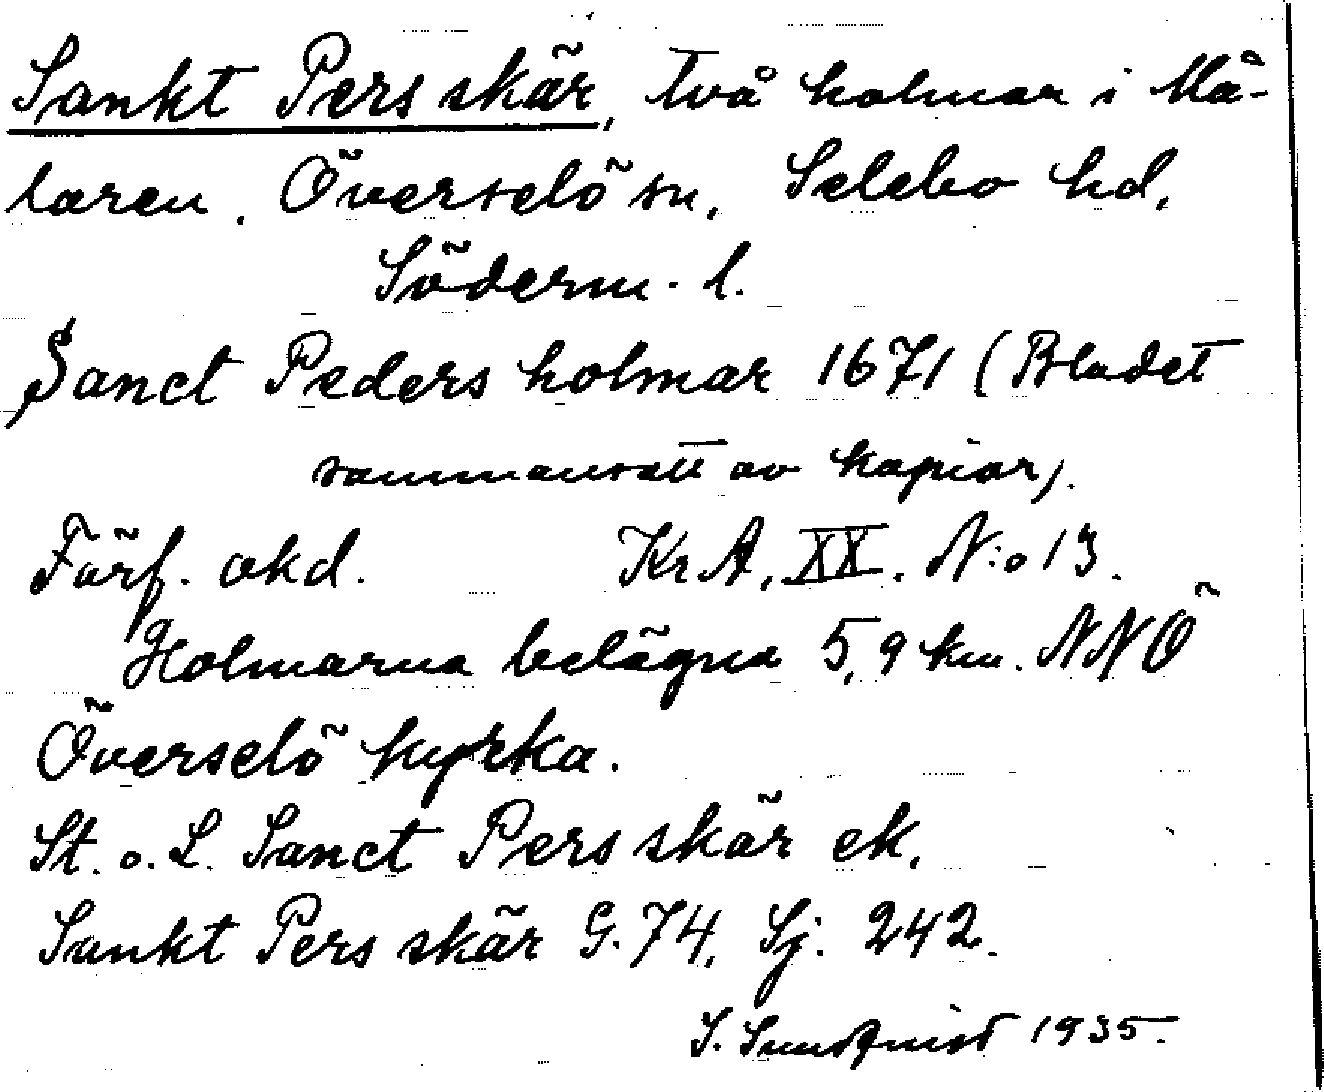 Sankt Pers skär, två holmar i Mä-
laren. Överselö sn, Selebo hd,
Söderm. l.
Sanct Peders holmar 1671 (Bladet
sammansatt av kopior).
Förf. okd. KrA, XX. N:o 13.
Holmarna belägna 5,9 km. NNÖ
Överselö kyrka.
St. o. L. Sanct Pers skär ek.
Sankt Pers skär G. 74, Sj. 242.
S. Sundqvist 1935.